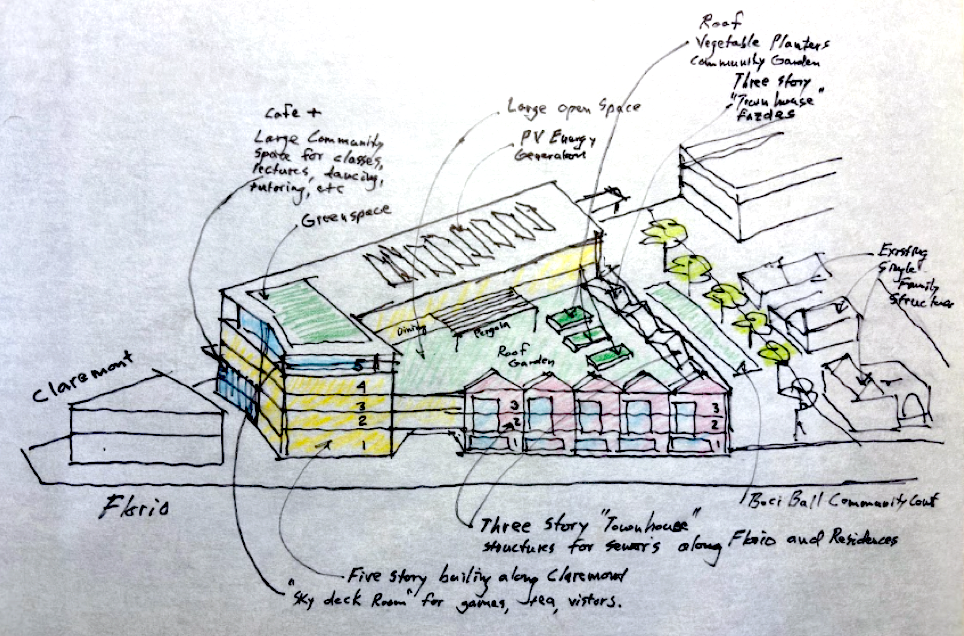 Roof
Vegetable Planters
Community Garden
Three story
"Townhouse"
Fazdes
Large open Space
PV Energy
Generation
Cafe +
Large Community
Space for classes,
lectures, dancing,
tutoring, etc
Greenspace
Existing
Single
Family
Structures
Dining
Pergola
Roof
Garden
Claremont
5
4
3
2
1
3
2
1
3
2
1
Florio
Bocci Ball Community Court
Three Story "Townhouse"
structures for
along Florio and Residences
Five story along Claremont
"Sky deck Room" for games, tea, vistors.